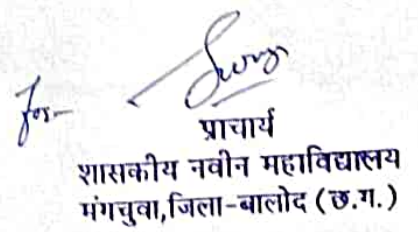 For-
प्राचार्य
शासकीय नवीन महाविद्यालय
मंगचुवा,जिला-बालोद (छ.ग.)